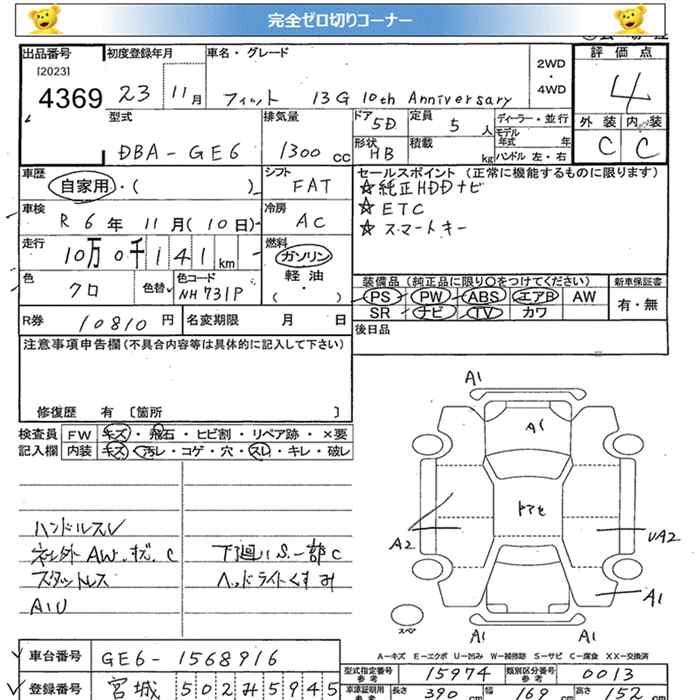 完全ゼロ切りコーナー
出品番号
[2023]
4369
初度登録年月
23 11 月
車名・グレード
フィット 13G 10th Anniversary
2WD
・
4WD
評 価 点
4
外 装 内 装
C C
型式
DBA-GE6
排気量
1300 cc
ドア 5D
形状 HB
定員 5 人
積載 kg
ディーラー・並行
モデル年式 年
ハンドル 左・右
車歴
自家用・( )
シフト
FAT
車検
R 6 年 11 月 (10 日)
冷房
AC
走行
10万 0千 1 4 1 km
燃料
ガソリン
軽 油
・
( )
色
クロ
色替
色コード
NH731P
セールスポイント (正常に機能するものに限ります)
☆純正HDDナビ
☆ETC
☆スマートキー
装備品 (純正品に限り○をつけてください)
PS PW ABS エアB AW
SR ナビ TV カワ
新車保証書
有・無
R券 10810 円
名変期限 月 日
後日品
注意事項申告欄 (不具合内容等は具体的に記入して下さい)
修復歴 有 〔箇所 〕
検査員 FW キズ・飛石・ヒビ割・リペア跡・×要
記入欄 内装 キズ・汚レ・コゲ・穴・スレ・キレ・破レ
ハンドルスレ
ネジ外 AW.キズ.C
スタットレス
A1U
下廻りS.一部C
ヘッドライトくすみ
A1
A1
A2
UA2
A1
A1
A1
スペア
A-キズ E-エクボ U-凹み W-補修跡 S-サビ C-腐食 XX-交換済
車台番号 GE6-1568916
登録番号 宮城 502み5945
型式指定番号 参考 15974
類別区分番号 参考 0013
車庫証明用 参考 長さ 390 cm 幅 169 cm 高さ 152 cm